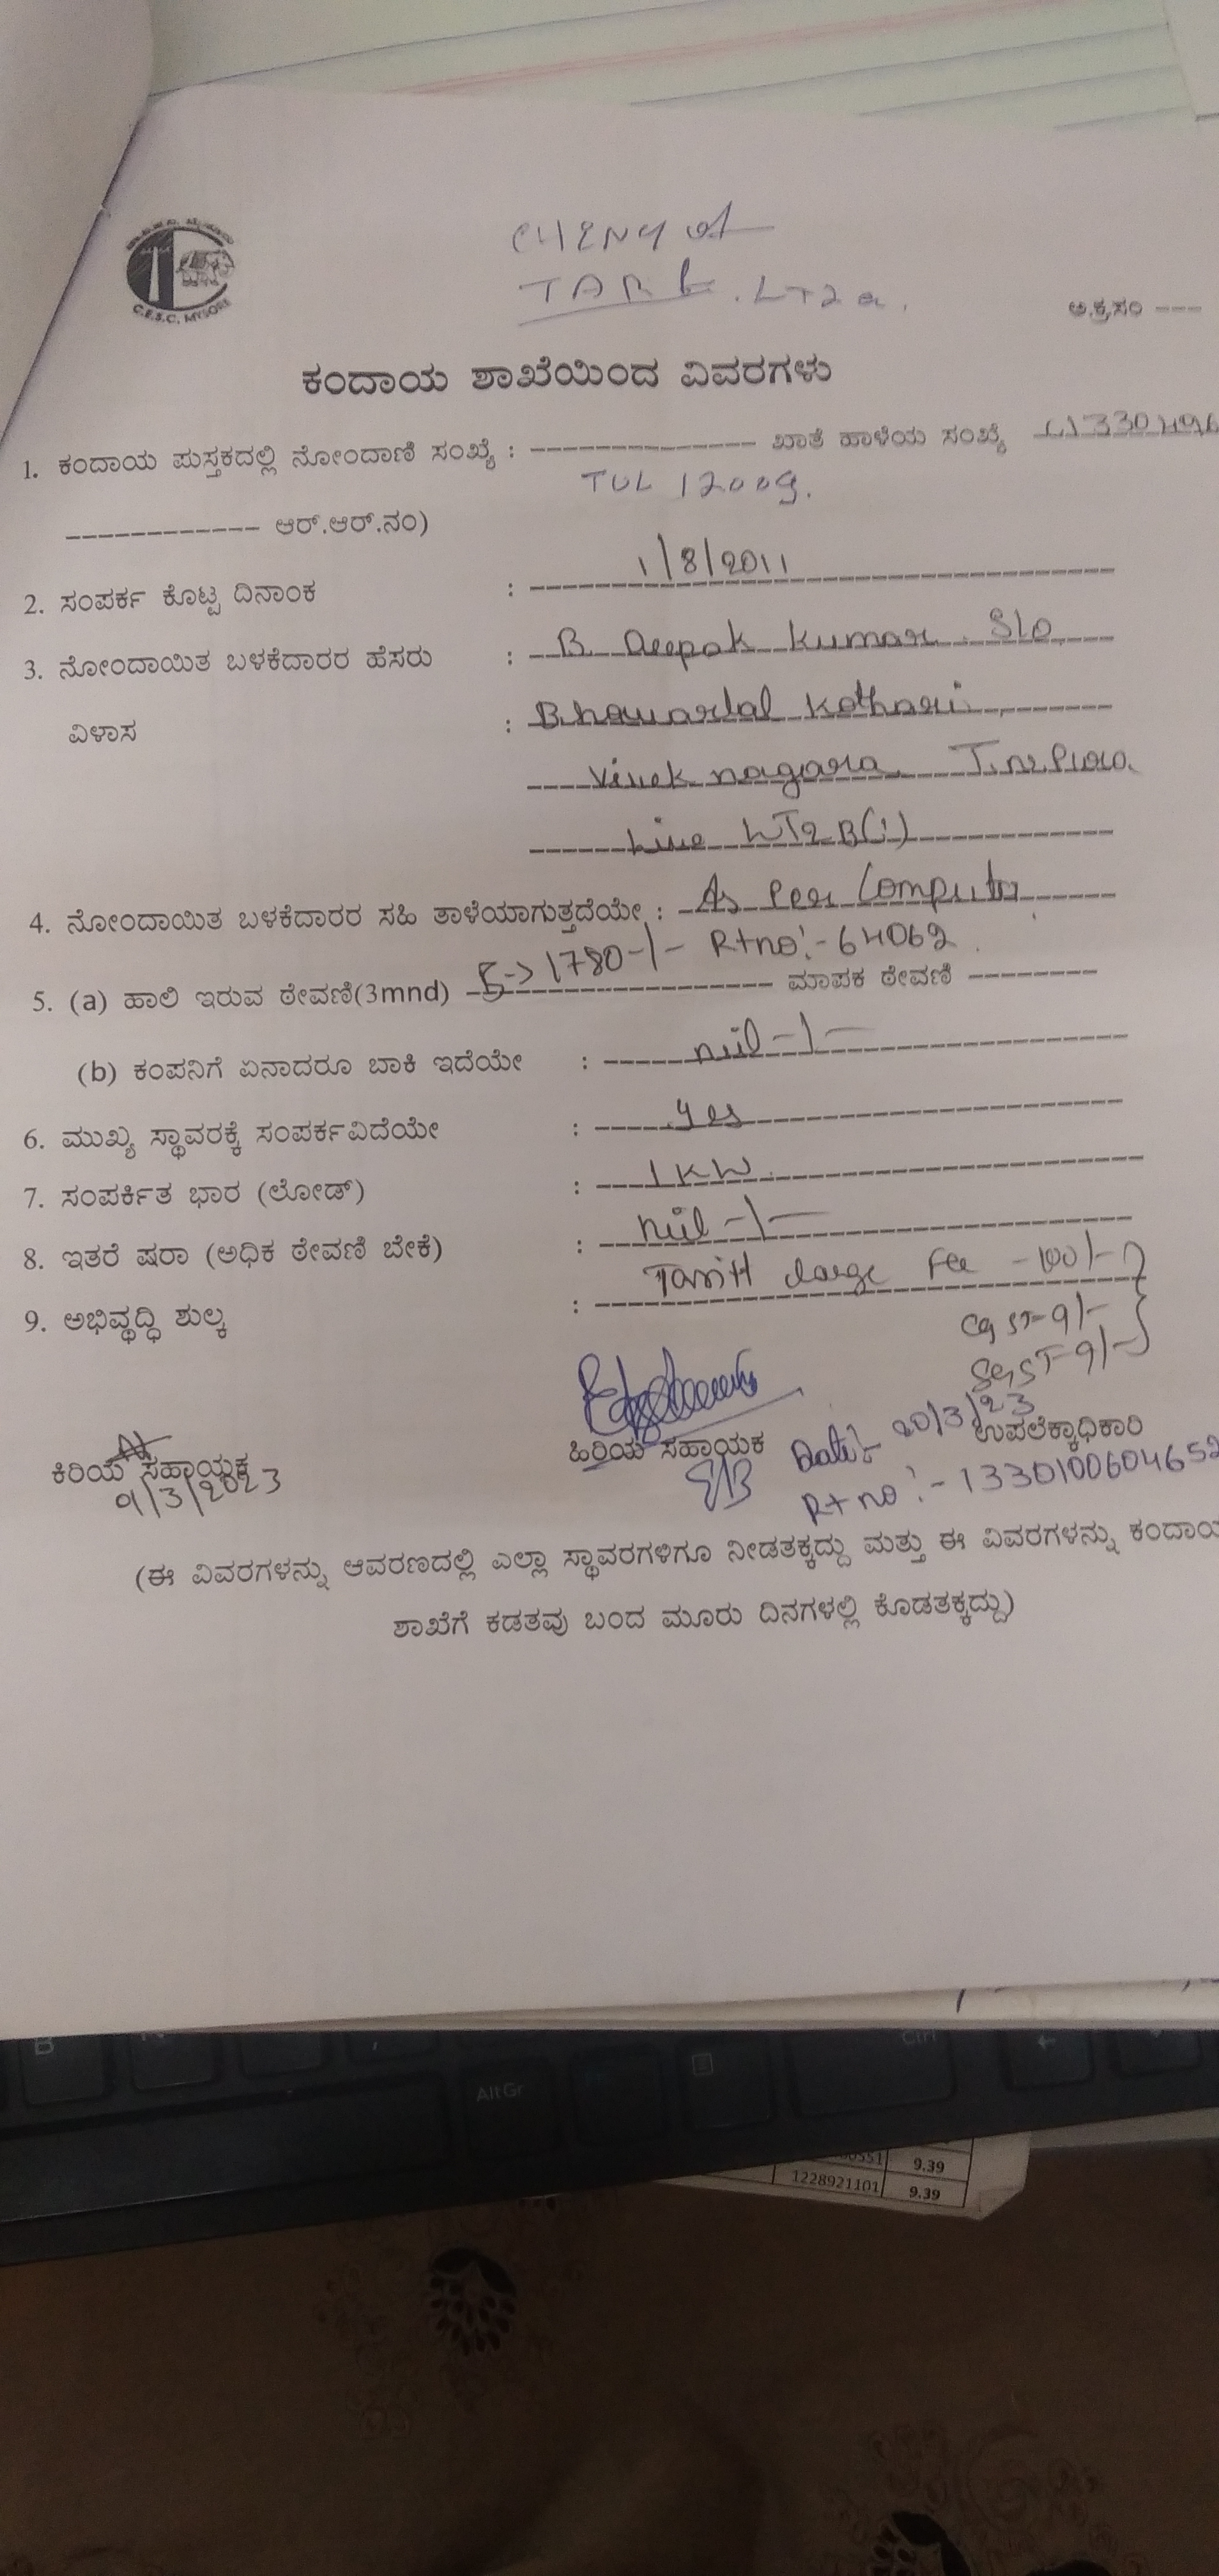 C.E.S.C. MYSORE
LT2a.
ಅ.ಕ್ರ.ಸಂ ---
ಕಂದಾಯ ಶಾಖೆಯಿಂದ ವಿವರಗಳು
1. ಕಂದಾಯ ಪುಸ್ತಕದಲ್ಲಿ ನೋಂದಾಣಿ ಸಂಖ್ಯೆ : ಖಾತೆ ಹಾಳೆಯ ಸಂಖ್ಯೆ
TUL 12009.
ಆರ್.ಆರ್.ನಂ)
2. ಸಂಪರ್ಕ ಕೊಟ್ಟ ದಿನಾಂಕ : 1/8/2011
3. ನೋಂದಾಯಿತ ಬಳಕೆದಾರರ ಹೆಸರು : B Deepak Kumar S/o
ವಿಳಾಸ : Bhawarlal Kothari
Vivek nagara
Live LT2B(1)
4. ನೋಂದಾಯಿತ ಬಳಕೆದಾರರ ಸಹಿ ತಾಳೆಯಾಗುತ್ತದೆಯೇ : As Per Computer
5. (a) ಹಾಲಿ ಇರುವ ಠೇವಣಿ(3mnd) 1780-/- R+no:- 64062 ಮಾಪಕ ಠೇವಣಿ
(b) ಕಂಪನಿಗೆ ಏನಾದರೂ ಬಾಕಿ ಇದೆಯೇ : nil-/-
6. ಮುಖ್ಯ ಸ್ಥಾವರಕ್ಕೆ ಸಂಪರ್ಕವಿದೆಯೇ : yes
7. ಸಂಪರ್ಕಿತ ಭಾರ (ಲೋಡ್) : 1KW
8. ಇತರೆ ಷರಾ (ಅಧಿಕ ಠೇವಣಿ ಬೇಕೆ) : nil-/-
9. ಅಭಿವೃದ್ಧಿ ಶುಲ್ಕ : Fee - 100/-
CGST-9/-
SGST-9/-
ಕಿರಿಯ ಸಹಾಯಕ ಹಿರಿಯ ಸಹಾಯಕ Date:- 20/3/23 ಉಪಲೆಕ್ಕಾಧಿಕಾರಿ
9/3/2023 R+no:- 1330100604652
(ಈ ವಿವರಗಳನ್ನು ಆವರಣದಲ್ಲಿ ಎಲ್ಲಾ ಸ್ಥಾವರಗಳಿಗೂ ನೀಡತಕ್ಕದ್ದು ಮತ್ತು ಈ ವಿವರಗಳನ್ನು ಕಂದಾಯ
ಶಾಖೆಗೆ ಕಡತವು ಬಂದ ಮೂರು ದಿನಗಳಲ್ಲಿ ಕೊಡತಕ್ಕದ್ದು)
B
Ctrl
AltGr
9.39
1228921101 9.39